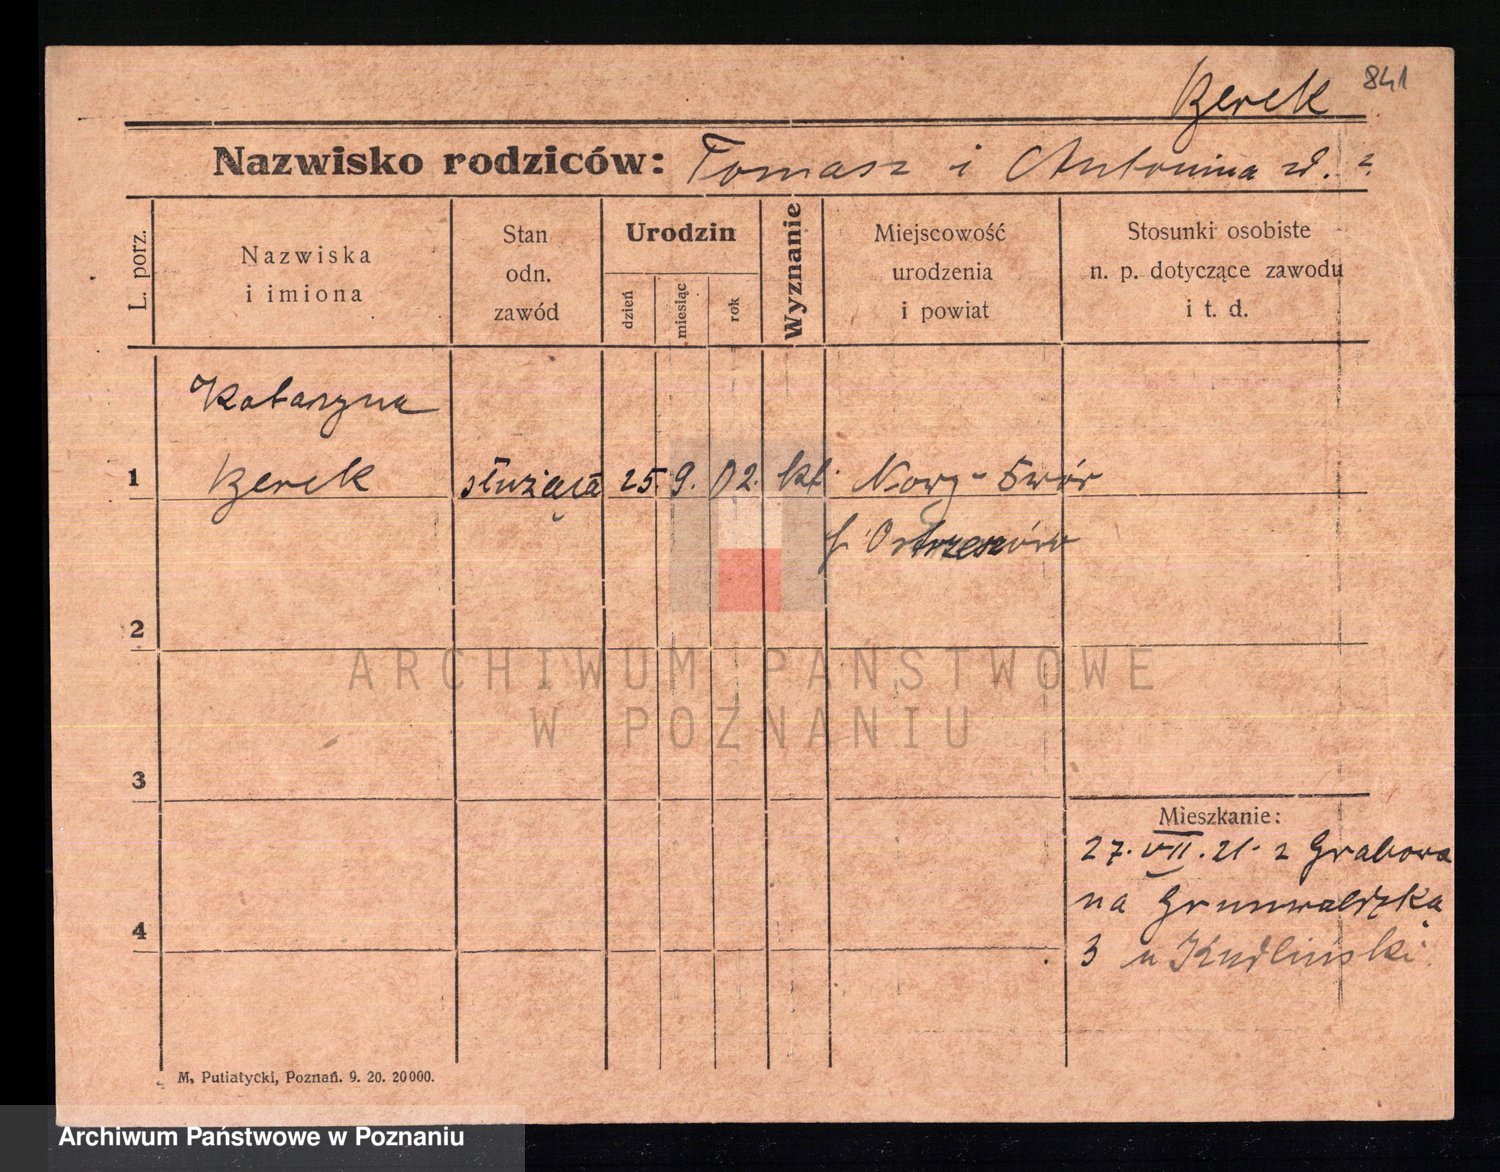 Berek 841
Nazwisko rodziców: Tomasz i Antonina zd. ?
L. porz.
Nazwiska
i imiona
Stan
odn.
zawód
Urodzin
dzień
miesiąc
rok
Wyznanie
Miejscowość
urodzenia
i powiat
Stosunki osobiste
n. p. dotyczące zawodu
i t. d.
Katarzyna
1 Berek służąca 25 9. 02. kt. Nowy-Dwór
Ostrzeszów
2
ARCHIWUM PAŃSTWOWE
W POZNANIU
3
Mieszkanie:
27. VII. 21. z Grabowa
4 na Grunwaldzka
3 u Kudliński.
M. Putiatycki, Poznań. 9. 20. 20000.
Archiwum Państwowe w Poznaniu